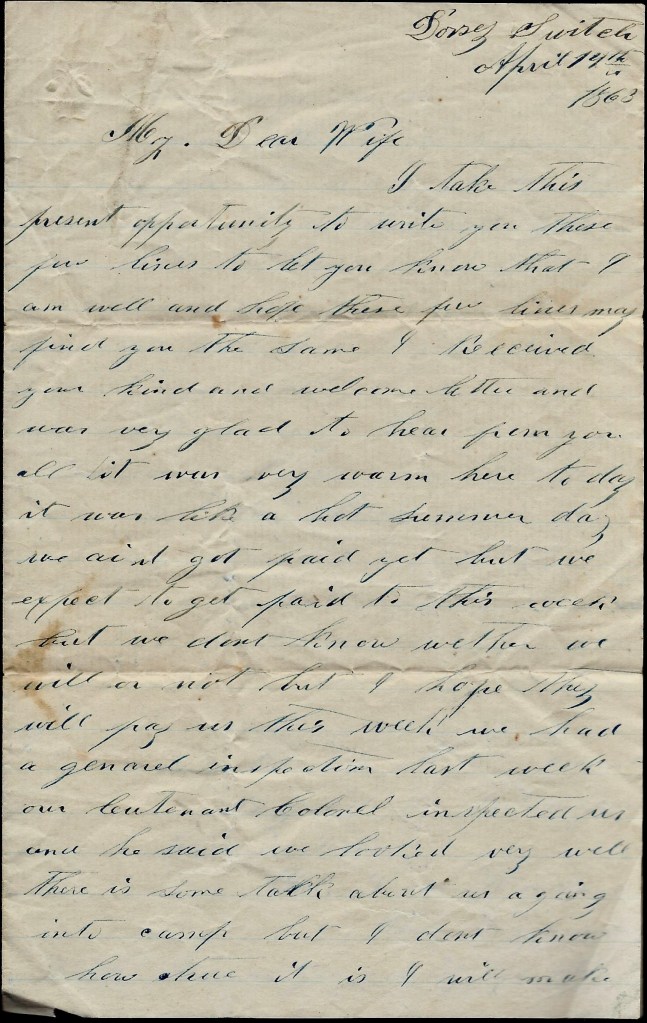 Dorsey Switch
April 14th
1863
My. Dear Wife
I take this
present opportunity to write you these
few lines to let you know that I
am well and hope these few lines may
find you the same I Received
your kind and welcome letter and
was very glad to hear from you
all it was very warm here to day
it was like a hot summer day
we aint got paid yet but we
expect to get paid to this week
but we dont know wether we
will or not but I hope they
will pay us this week we had
a genarel inspection last week
our leutenant Colonel inspected us
and he said we looked very well
there is some talk about us agoing
into camp but I dont know
how true it is I will make